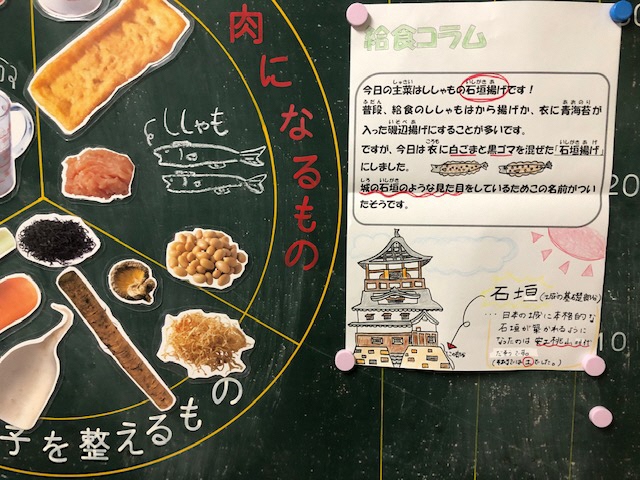 肉になるもの
ししゃも
子を整えるもの
給食コラム
今日の主菜はししゃもの石垣揚げです！
普段、給食のししゃもはから揚げか、衣に青海苔が
入った磯辺揚げにすることが多いです。
ですが、今日は衣に白ごまと黒ゴマを混ぜた「石垣揚げ」
にしました。
城の石垣のような見た目をしているためこの名前がつい
たそうです。
石垣（城の基礎部分）
…日本の城に本格的な
石垣が築かれるように
なったのは 安土桃山時代
だそうです。
20
10